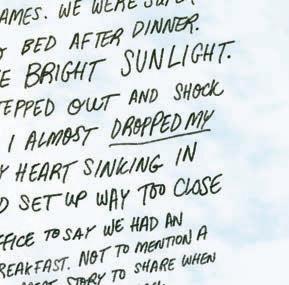 AMES. WE WERE
BED AFTER DINNER.
BRIGHT SUNLIGHT.
TEPPED OUT AND SHOCK
I ALMOST DROPPED MY
HEART SINKING IN
D SET UP WAY TOO CLOSE
FFICE TO SAY WE HAD AN
REAKFAST. NOT TO MENTION A
STORY TO SHARE WHEN